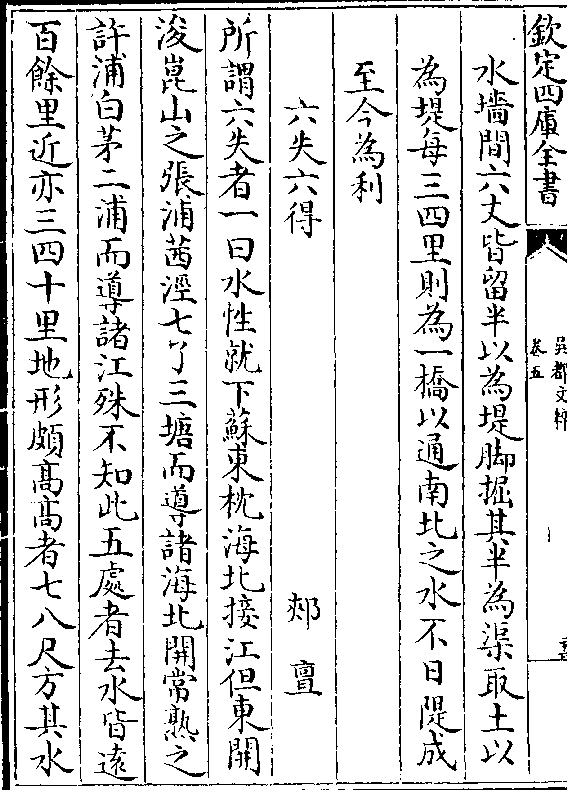 欽定四庫全書
吳都文粹
卷五
水墻間六丈皆留半以為堤脚掘其半為渠取土以
為堤每三四里則為一橋以通南北之水不日隄成
至今為利
六失六得
郟亶
所謂六失者一曰水性就下蘇東枕海北接江但東開
浚崑山之張浦茜涇七丫三塘而導諸海北開常熟之
許浦白茅二浦而導諸江殊不知此五處者去水皆遠
百餘里近亦三四十里地形頗髙髙者七八尺方其水